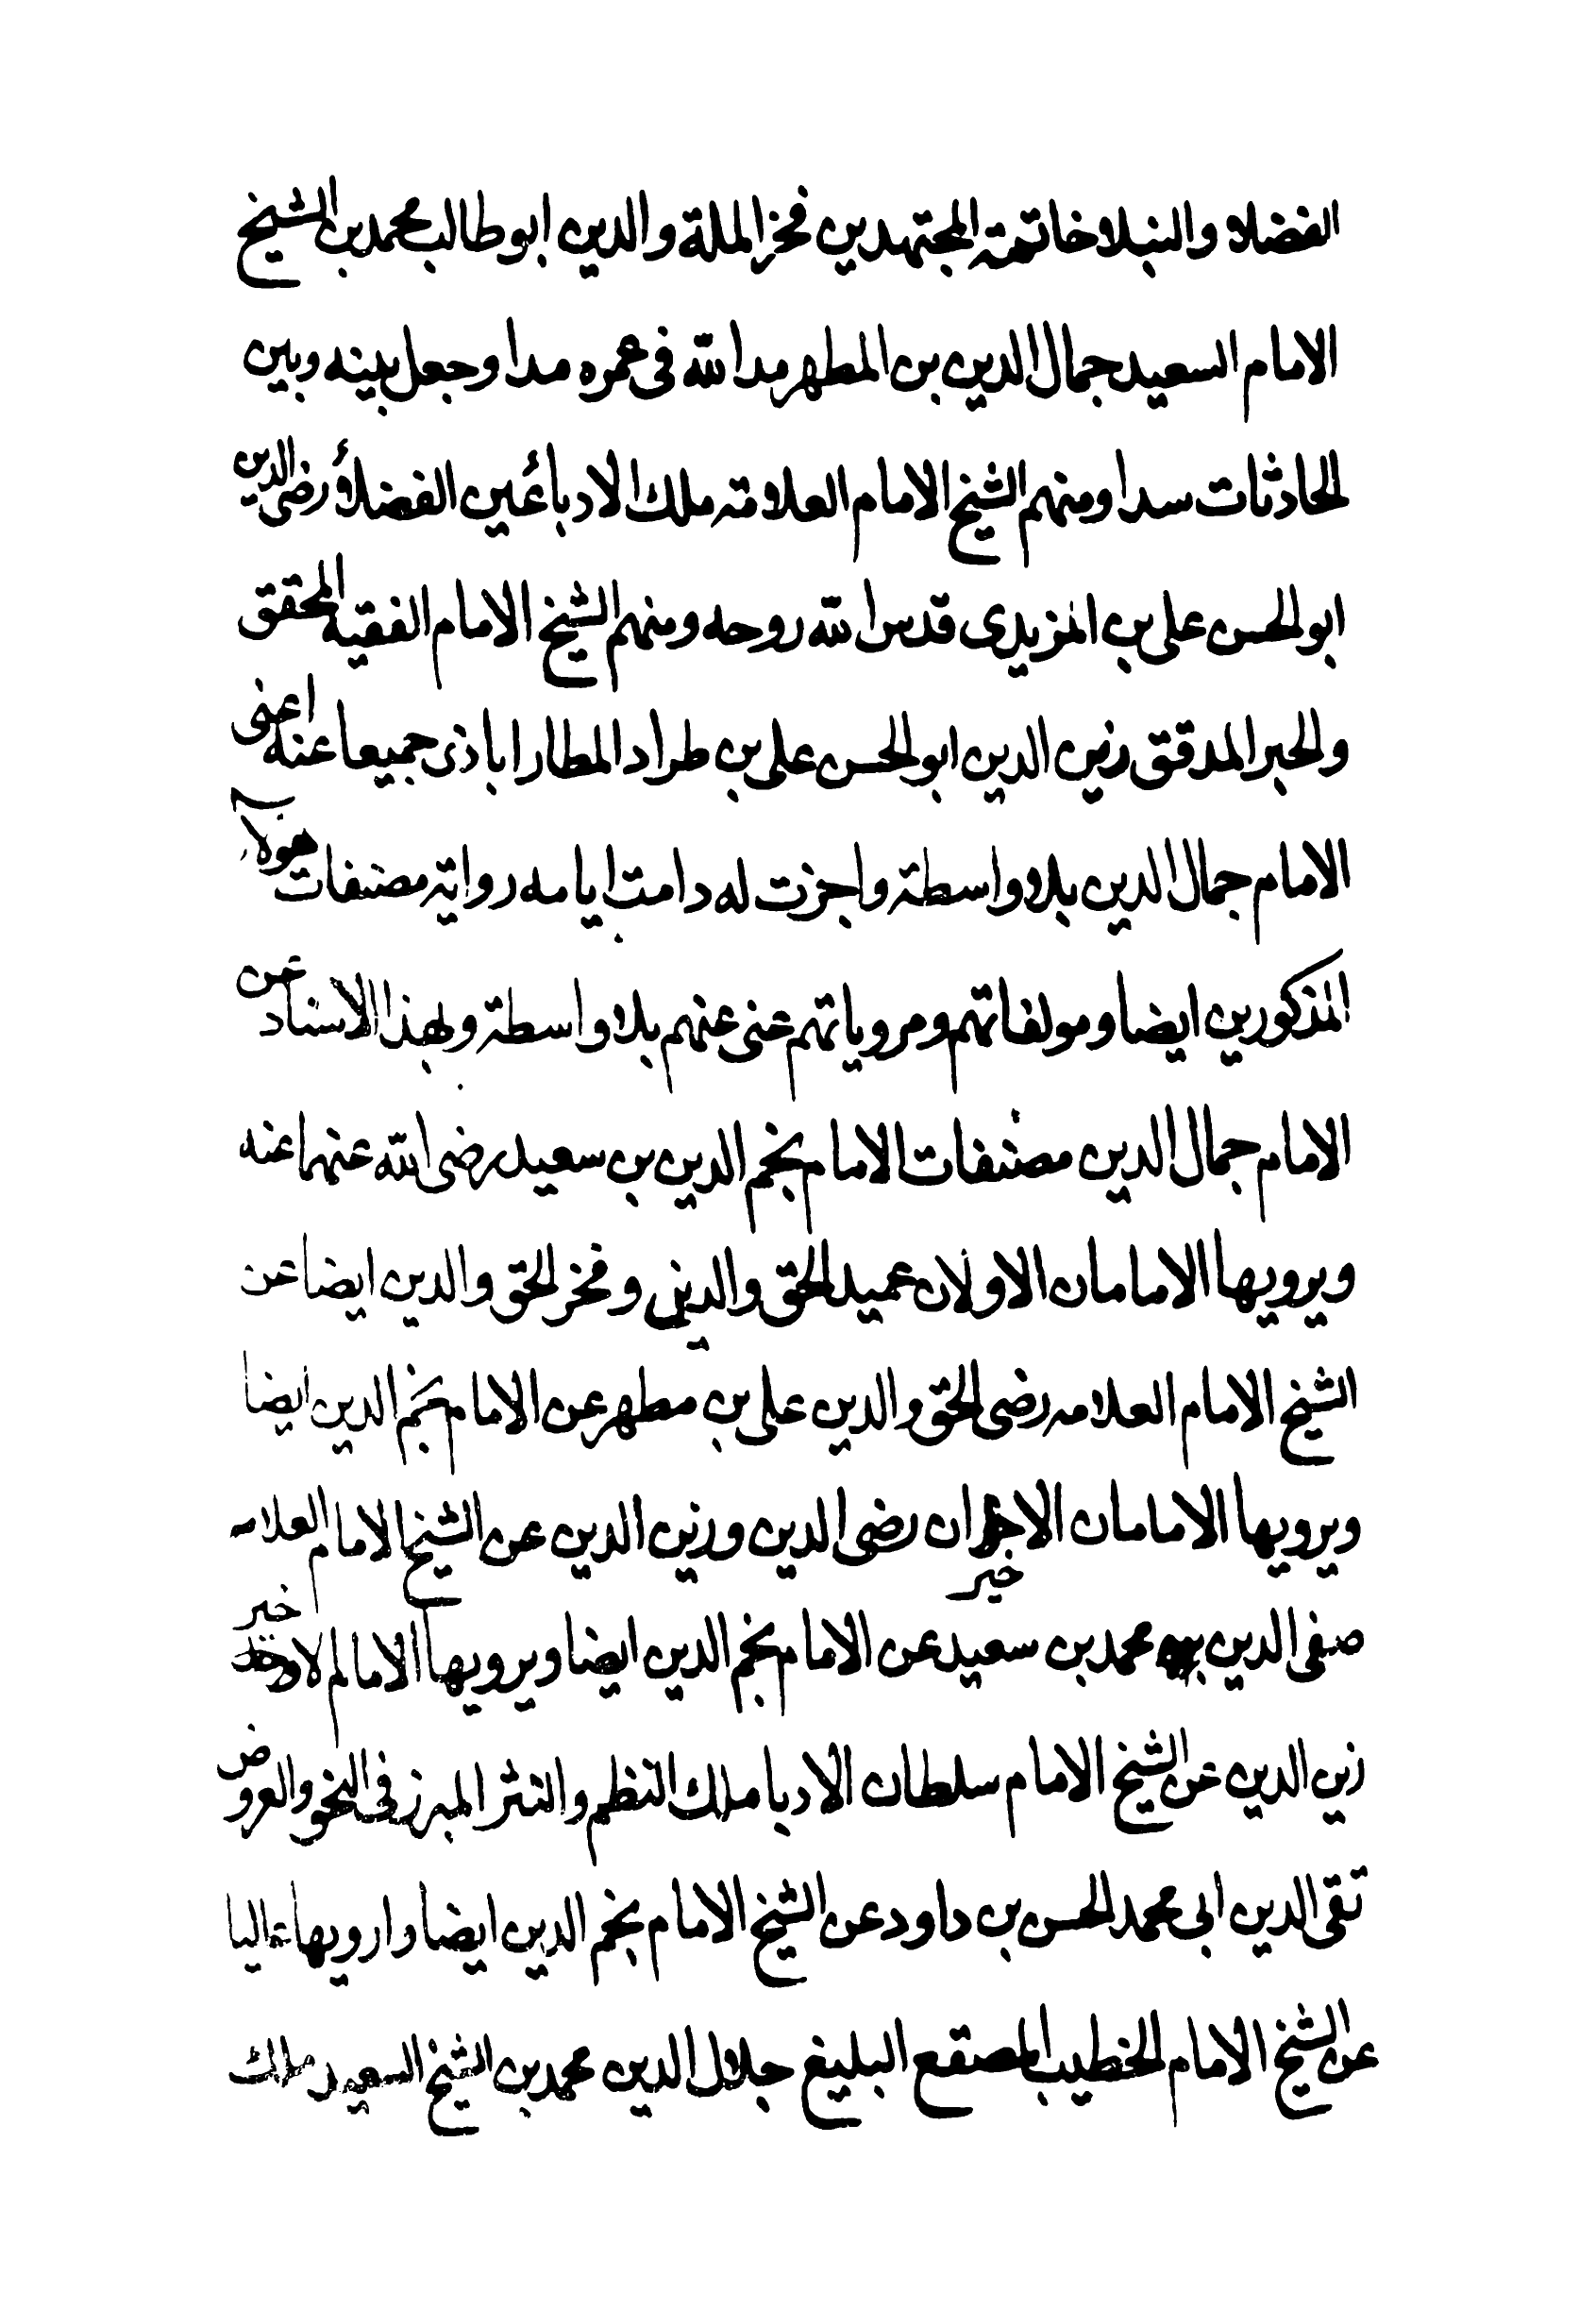 الفضلا والنبلا خاتمة المجتهدين فخر الملة والدين ابو طالب محمد بن الشيخ
الامام السعيد جمال الدين بن المطهر مدا لله فى عمره مدا وجعل بينه وبين
الحادثات سدا ومنهم الشيخ الامام العلامة ملك الادبا عين الفضلاء رضى الدين
ابو الحسن على بن المزيدى قدس الله روحه ومنهم الشيخ الامام الفقيه المحقق
والحبر المدقق زين الدين ابو الحسن على بن طراد المطارابادى جميعا عنه اعنى
الامام جمال الدين بلا واسطة واجزت له دامت ايامه رواية مصنفات هولا
المذكورين ايضا ومولفاتهم ومروياتهم عنى عنهم بلا واسطة وبهذا الاسناد عن
الامام جمال الدين مصنفات الامام نجم الدين بن سعيد رضى الله عنهما عنه
ويرويها الامامان الاولان عميد الحق والدين وفخر الحق والدين ايضا عن
الشيخ الامام العلامه رضى الحق والدين على بن مطهر عن الامام نجم الدين ايضا
ويرويها الامامان الاخيران رضى الدين وزين الدين عن الشيخ الامام العلامه
خير
صفى الدين محمد بن سعيد عن الامام نجم الدين ايضا ويرويها الامام الاخير
زين الدين عن الشيخ الامام سلطان الادبا ملك النظم والنثر المبرز فى النحو والعروض
تقى الدين ابى محمد الحسن بن داود عن الشيخ الامام نجم الدين ايضا وارويها عاليا
عن الشيخ الامام الخطيب المصقع البليغ جلال الدين محمد بن الشيخ السعيد ملك